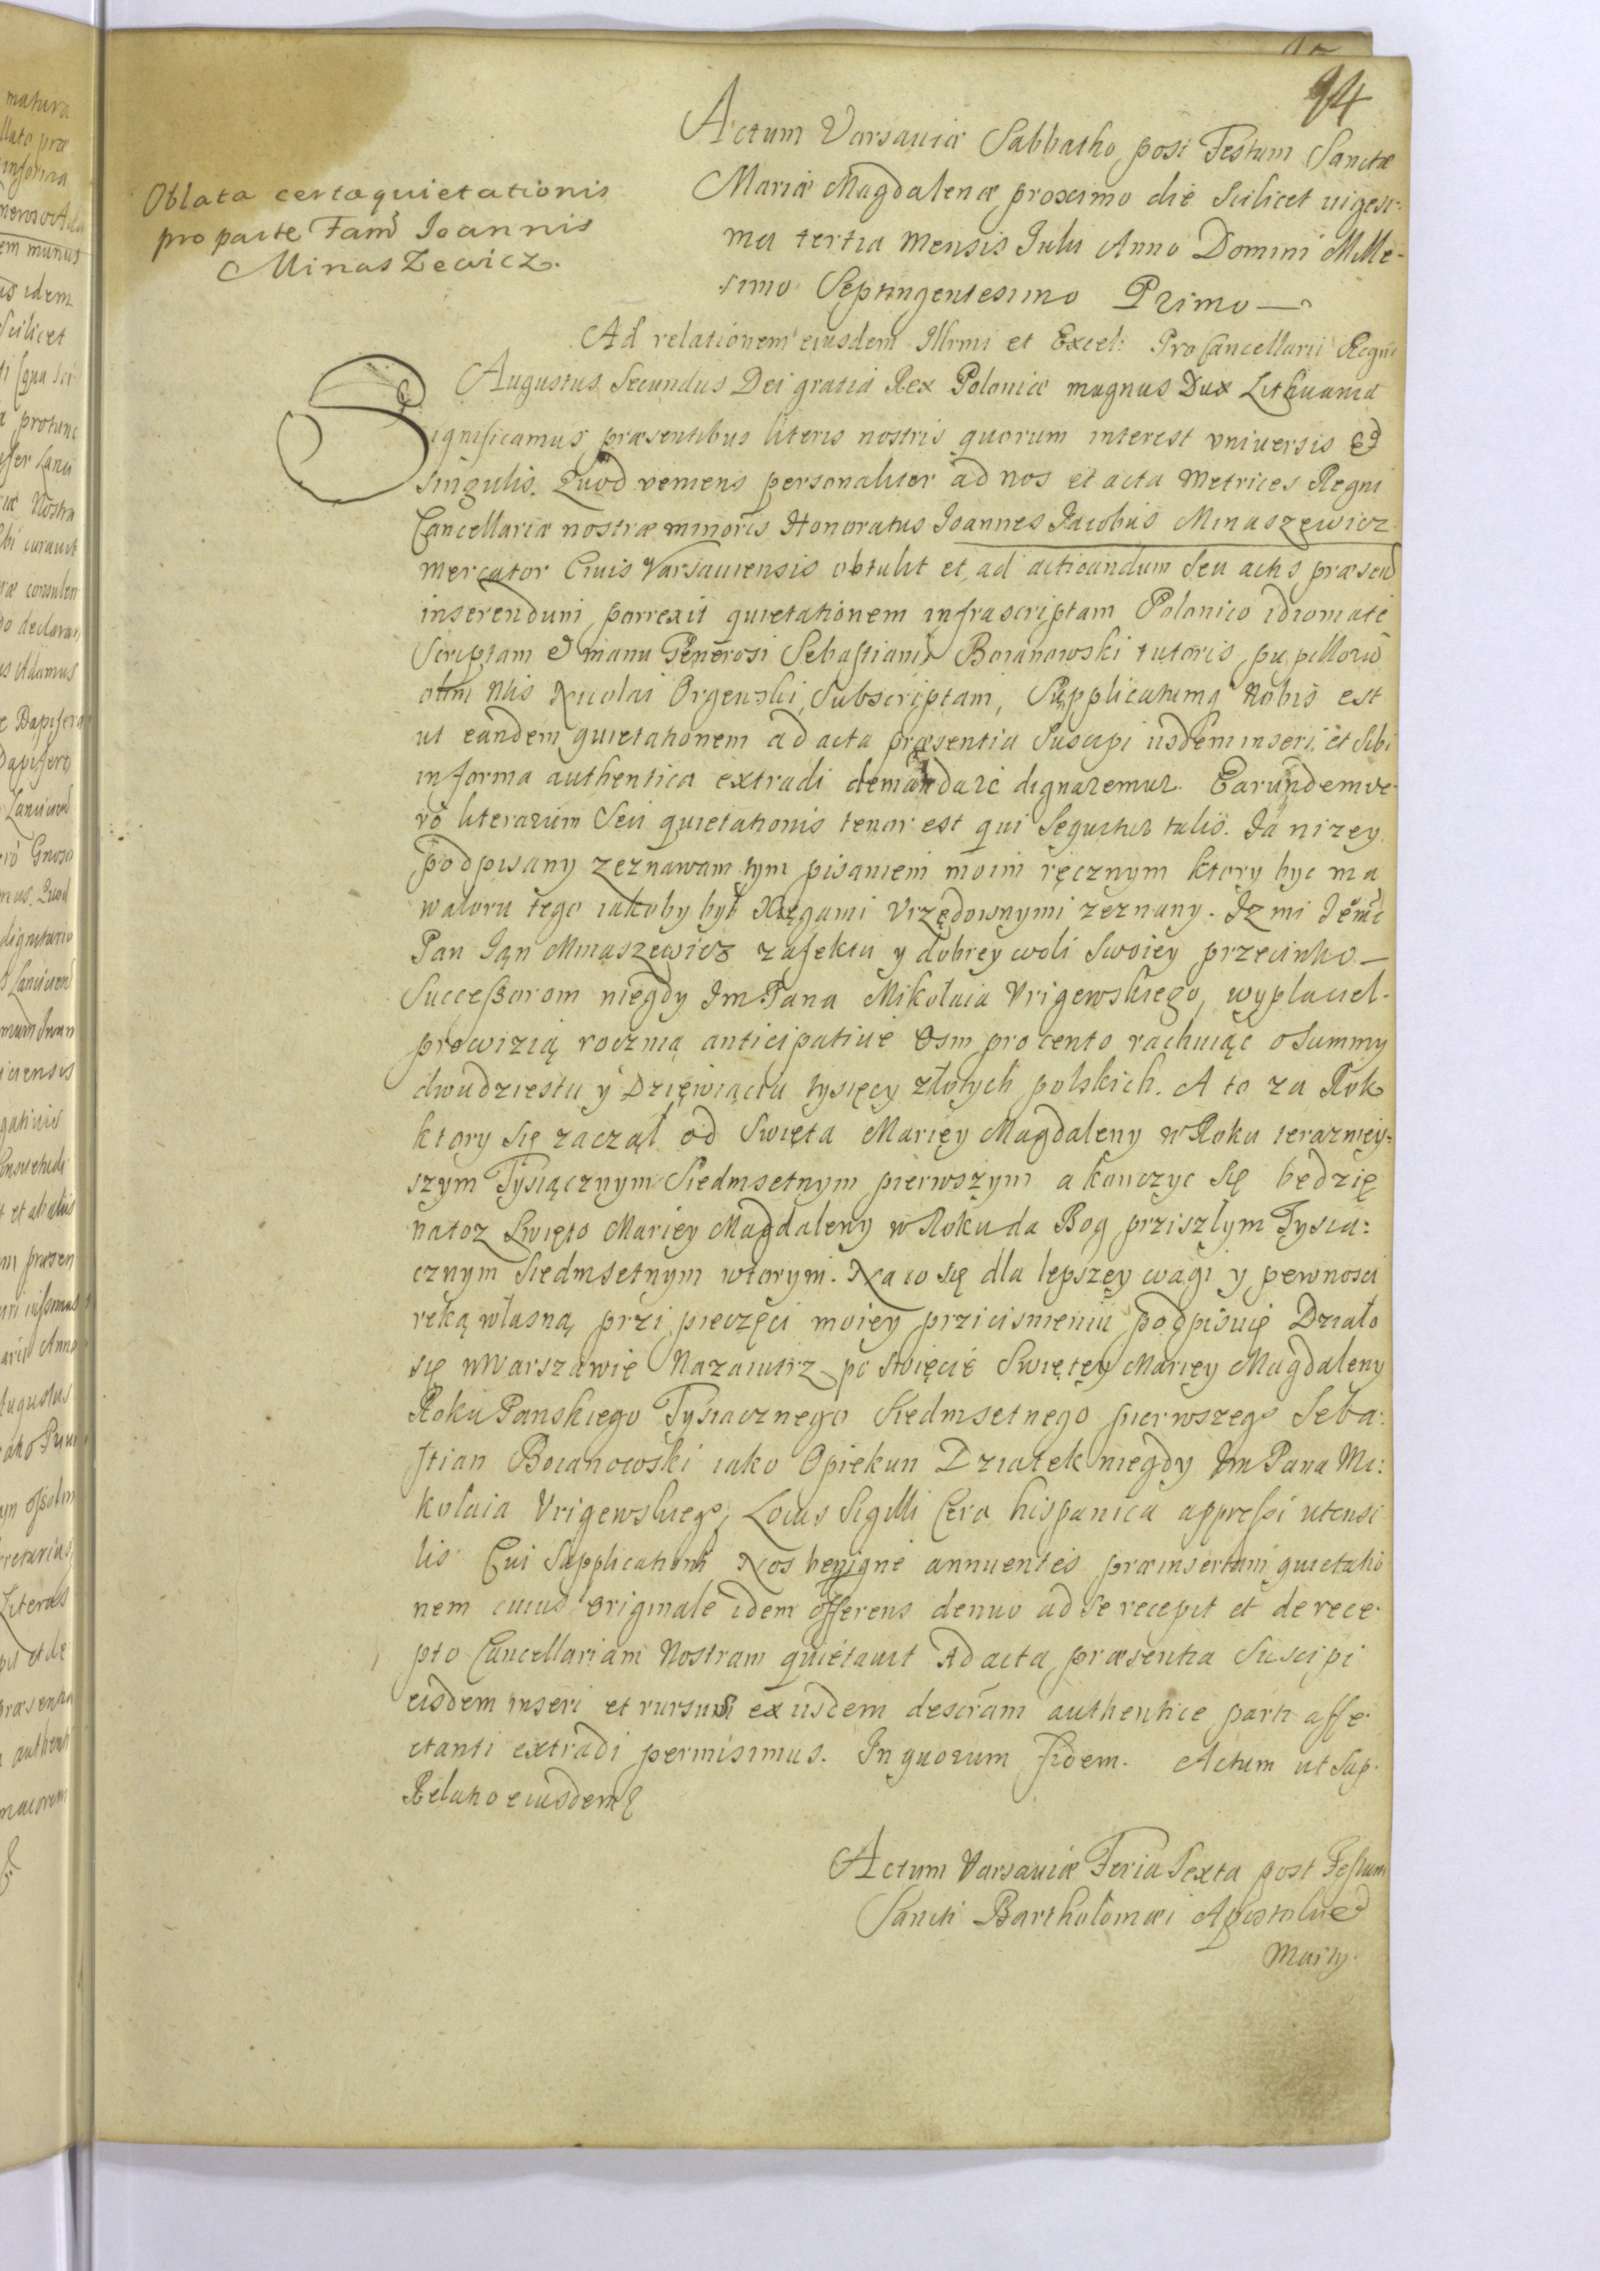 94
Actum Varsaviæ Sabbatho post Festum Sanctæ
Mariæ Magdalenæ proximo die Scilicet vigesi-
ma tertia mensis Iulii Anno Domini Mille-
simo Septingentesimo Primo
Oblata certæ quietationis
pro parte Fam Ioannis
Minaszewicz.
Ad relationem eiusdem Illrmi et Excel: Pro Cancellarii Regni
Augustus Secundus Dei gratia Rex Poloniæ magnus Dux Lithuaniæ
Significamus præsentibus literis nostris quorum interest universis et
singulis. Quod veniens personaliter ad nos et acta Metrices Regni
Cancellariæ nostræ minoris Honoratus Ioannes Iacobus Minaszewicz
mercator Civis Varsaviensis obtulit et ad acticandum seu actis præsend
inserendum porrexit quietationem infrascriptam Polonico idiomate
Scriptam et manu Generosi Sebastiani Boianowski tutoris pupillorū
olim Nlis Nicolai Orgewski, Subscriptam, Supplicatumq Nobis est
ut eandem quietationem ad acta præsentia Suscipi iisdem inseri, et Sibi
in forma authentica extradi demandare dignaremur. Earundem ve-
rò literarum Seu quietationis tenor est qui Sequitur talis. Ia nizey
podpisany zeznawam tym pisaniem moim ręcznym ktory byc ma
waloru tego iakoby był Xięgami Vrzędownymi zeznany. Iz mi Iemc
Pan Ian Minaszewicz z afektu y dobrey woli Swoiey przeciwko
Successorom niegdy Im Pana Mikołaia Vrigewskiego, wypłaciel
prowizią roczną anticipative Osm procento rachuiąc o Summy
dwudziestu y Dziewiąciu tysięcy złotych polskich. A to za Rok
ktory się zaczął od Swięta Mariey Magdaleny w Roku terazniey-
szym Tysiącznym Siedmsetnym pierwszym a konczyc Się będzię
na toz Swięto Mariey Magdaleny w Roku da Bog przyszłym Tysią:
cznym Siedmsetnym wtorym. Na co się dla lepszey wagi y pewnosci
ręką własną, przi pieczęci moiey przicisnieniu podpisuię Działo
się w Warszawie Nazaiutrz po Swięcie Swiętey Mariey Magdaleny
Roku Panskiego Tysiącznego Siedmsetnego pierwszego Seba:
stian Boianowski iako Opiekun Dziatek niegdy Im Pana Mi:
kołaia Vrigewskiego, Locus Sigilli Cera hispanica appressi utensi
lis Cui Supplicationi Nos benigne annuentes præinsertam quietatio
nem cuius originale idem offerens denuo ad se recepit et de rece-
pto Cancellariam Nostram quietavit Ad acta præsentia Suscipi
eisdem inseri et rursus ex iisdem descram authentice parti affe-
ctanti extradi permisimus. In quorum fidem. Actum ut Sup.
Relatio eiusdem
Actum Varsaviæ Feria Sexta post Festum
Sancti Bartholomæi Apostoli et
Marty.